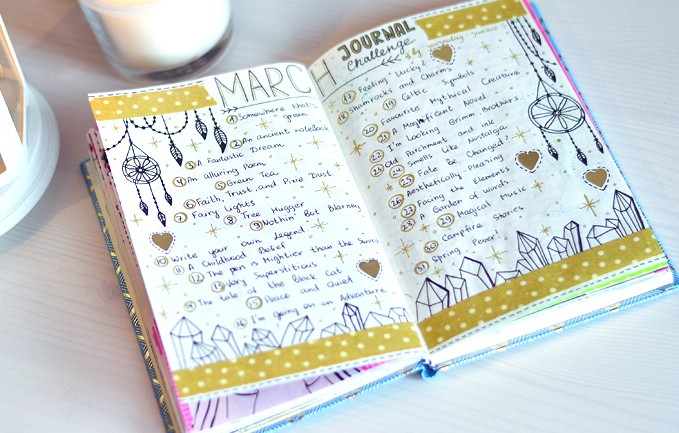 MARCH
JOURNAL
Challenge
1 Somewhere that's
green
2 An ancient notebook
3 A Fantastic Dream
4 An alluring Poem
5 Green Tea
6 Faith, Trust, and Pixie Dust.
7 Fairy Lights
8 Tree Hugger
9 Nothin' But Blarney
10 Write your own legend
11 A Childhood Belief
12 The pen is Mightier than the Sword
13 Very Superstitious
14 The tale of the Black Cat
15 Peace and Quiet
16 I'm going on an Adventure
17 Feeling Lucky?
18 Shamrocks and Charms
19 Celtic Symbols
20 Favourite Mythical Creature
21 A Magnificent Novel
22 I'm Looking Grimm Brothers
23 Old Parchment and ink
24 Smells like Nostalgia
25 Fate Be Changed
26 Aesthetically Pleasing
Facing the Elements
28 A Garden of words
29 Magical Music
30 Campfire Stories
31 Spring Reveal